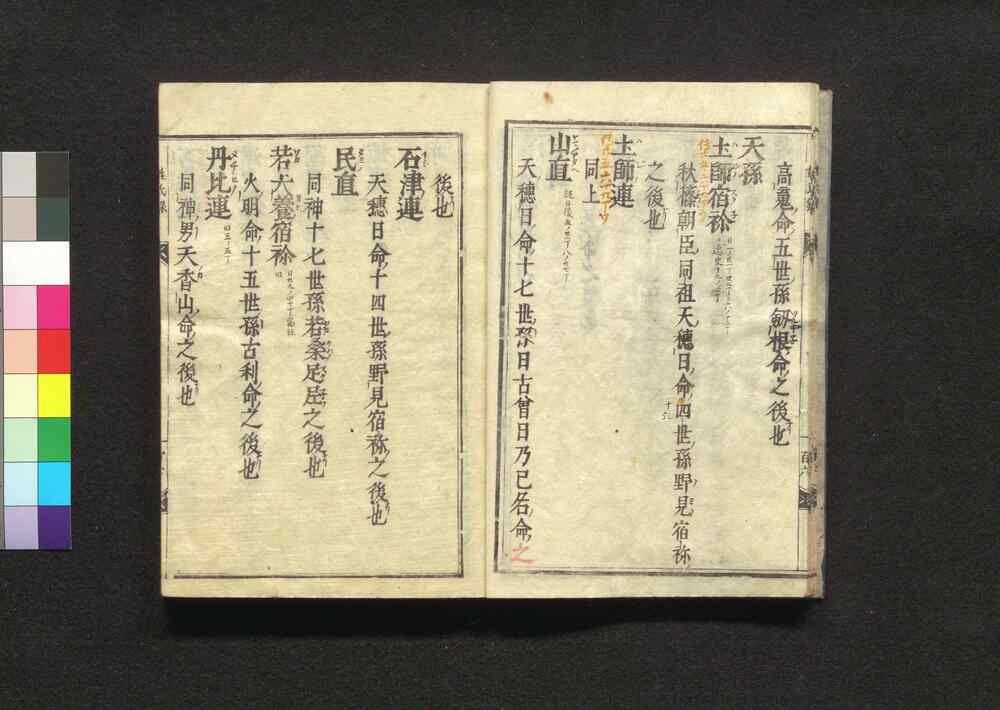 高魂命五世孫劔根命之後也
天孫
土師宿祢
秋篠朝臣同祖天穗日命四世孫野見宿祢
十
之後也
土師連
同上
山直
天穗日命十七世孫日古曾日乃己呂命之
後也
石津連
天穗日命十四世孫野見宿祢之後也
民直
同神十七世孫若桑足尼之後也
若犬養宿祢
火明命十五世孫古利命之後也
丹比連
同神男天香山命之後也